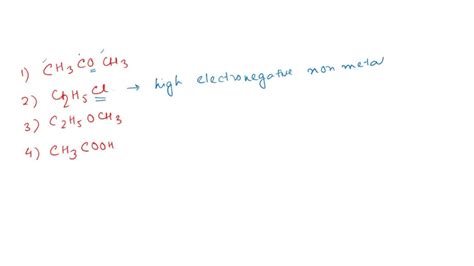 1) CH3 CO CH3
2) C2H5 Cl → high electronegative non metal
3) C2H5 OCH3
4) CH3 COOH